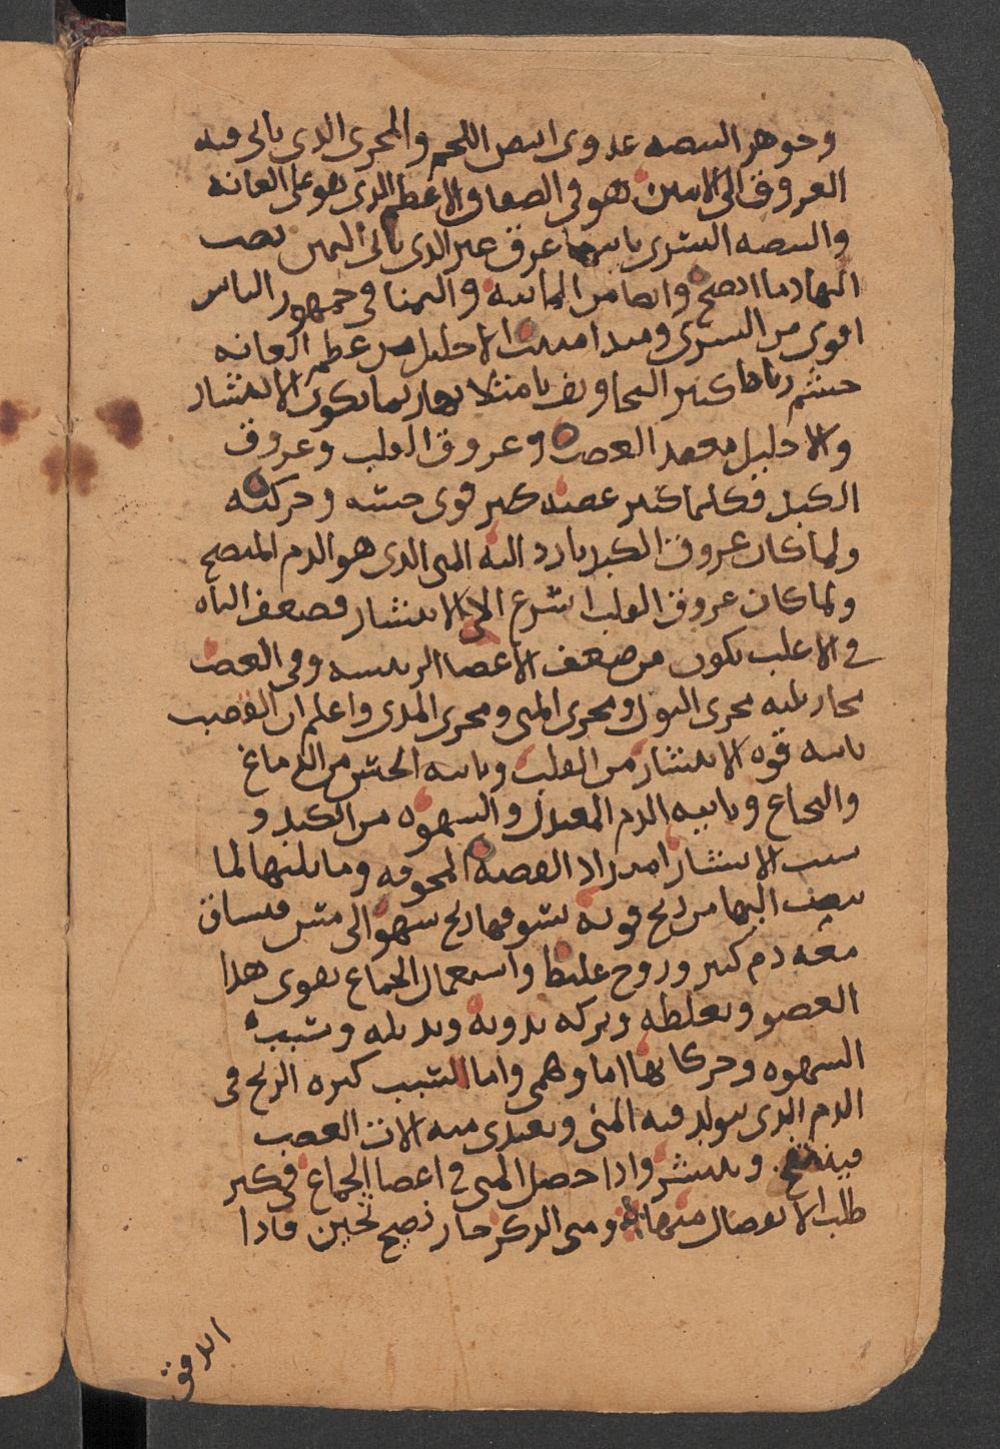 وجوهر البيضه غددى ابيض اللحم والمجرى الذى ياتى فيه
العروق الى الانثيين هو فى الصفاق الاعظم الذى هو على العانه
والبيضه اليسرى ياتيها عرق غير الذى ياتى اليمين يصب
اليها دما انضج وانقا من المائيه واليمنا فى جمهور الناس
اقوى من اليسرى ومبدا منبت الاحليل من عظم العانه
جسم رباطى كثير التجاويف بامتلايها ريحا يكون الانتشار
والاحليل معهد العصب وعروق القلب وعروق
الكبد فكلما كثير عصبه كبر قوى حسه وحركته
ولما كان عروق الكبد بارد اليه المنى الذى هو الدم المنضج
ولما كان عروق القلب اسرع الى الانتشار فضعف الباه
فى الاغلب يكون من ضعف الاعضا الرييسه وفى القضيب
مجار ثلثه مجرى البول ومجرى المنى ومجرى المذى واعلم ان القضيب
ياتيه قوه الانتشار من القلب وياتيه الحس من الدماغ
والنخاع وياتيه الدم المعتدل والشهوه من الكبد و
سبب الانتشار امتداد العصبه المجوفه وما يليها لما
ينصب اليها من ريح قويه يسوقها ريح شهوانى متين فينساق
معه دم كثير وروح غليظ واستعمال الجماع يقوى هذا
العضو ويغلظه وتركه يذويه ويذبله وسبب
الشهوه وحركاتها اما وهمى واما لسبب كثره الريح فى
الدم الذى يتولد فيه المنى ويغتذى منه الات القضيب
فينتفخ وينتشر واذا حصل المنى فى اعضا الجماع فكثر
طلب الانفصال منها ومنى الذكر حار نضيج ثخين فاذا
اندفق